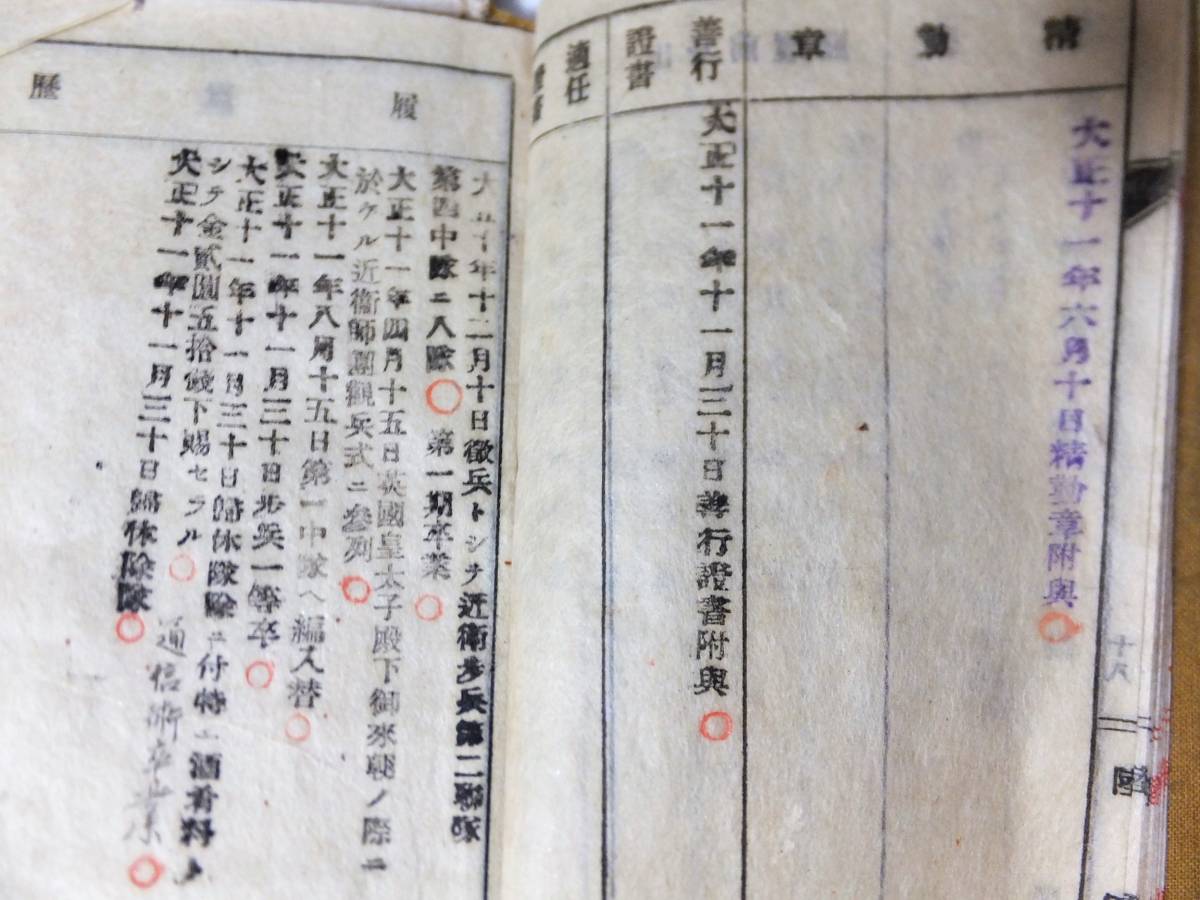 精勤章
大正十一年六月十日精勤章附與
善行證書
大正十一年十一月三十日善行證書附與
適任
十八
陸
履歴
大正十年十二月十日徴兵トシテ近衛歩兵第二聯隊
第四中隊ニ入隊 第一期卒業
大正十一年四月十五日英國皇太子殿下御來朝ノ際ニ
於ケル近衛師團觀兵式ニ參列
大正十一年八月十五日第一中隊ヘ編入替
大正十一年十一月三十日歩兵一等卒
大正十一年十一月三十日歸休除隊ニ付特ニ酒肴料ト
シテ金貳圓五拾錢下賜セラル
大正十一年十一月三十日歸休除隊
通信術卒業